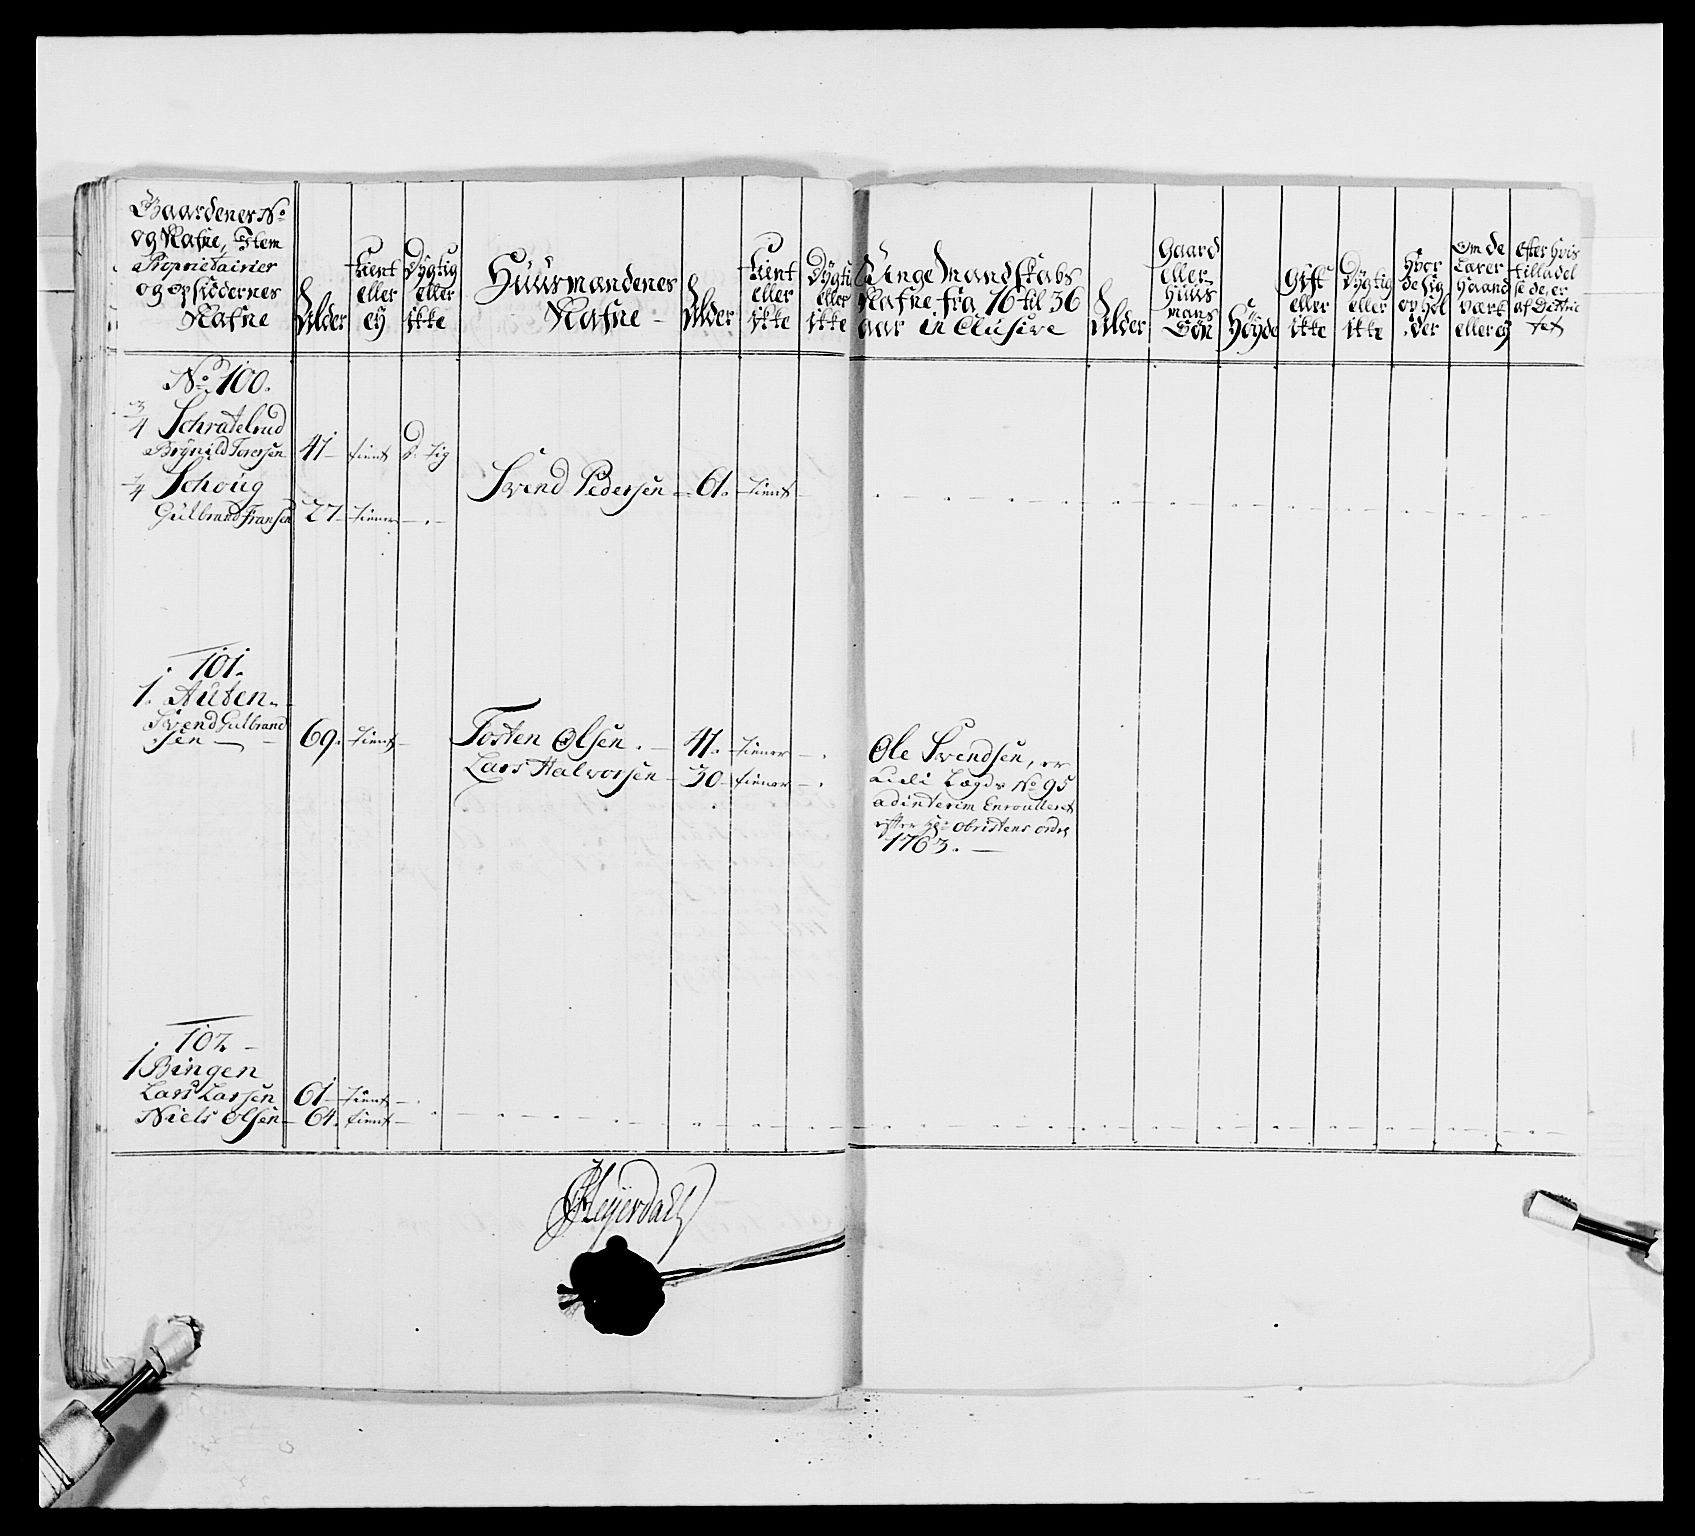 Gaardenes No
og Nafne, Item
Proprietairier
og opsiddernes
Nafne
Alder
tient
eller
ey
Dygtig
eller
ikke
Huusmændenes
Nafne
Alder
tient
eller
ikke
Dygtig
eller
ikke
Unge Mandskabs
Nafne fra 16 til 36
aar inclusive
Alder
Gaard
eller
Huus
mans
Søn
Høyde
Gift
eller
ikke
Dygtig
eller
ikke
Hvor
de sig
ophol
der
Om de
Lærer
Haand
værk
eller ey
Efter hvis
tilladel
se de, er
af Distric
tet
No 100.
3/4 Schratelrud
Brynild Torersen 41 tient D. tig
1/4 Schoug
Svend Pedersen 61. tient
Gulbrand Fransen 27 tiener
101.
1. Auten
Svend Gulbrand
sen 69. tient
Tosten Olsen. 41. tiener
Lars Halvorsen 30 tiener
Ole Svendsen, er
Lægds No 95
ad interim Enroulleret
efter Hr Obristens ordre
1763.
102
1 Bingen
Lars Larsen 61 tient
Niels Olsen 64. tient
Heyerdahl